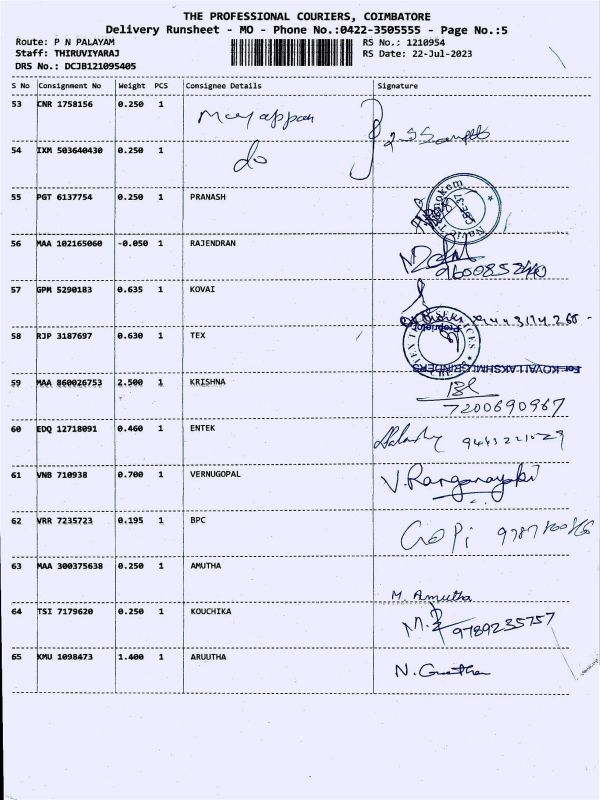 THE PROFESSIONAL COURIERS, COIMBATORE
Delivery Runsheet - MO - Phone No.:0422-3505555 - Page No.:5
Route: P N PALAYAM RS No.: 1210954
Staff: THIRUVIYARAJ RS Date: 22-Jul-2023
DRS No.: DCJB121095405
S No Consignment No Weight PCS Consignee Details Signature
53 CNR 1758156 0.250 1 Mayappan
54 IXM 503640430 0.250 1 do
55 PGT 6137754 0.250 1 PRANASH
56 MAA 102165060 -0.050 1 RAJENDRAN
9600852240
57 GPM 5290183 0.635 1 KOVAI
58 RJP 3187697 0.630 1 TEX
For KOVAI LAKSHMI GRINDERS
Proprietor
59 MAA 860026753 2.500 1 KRISHNA
7200690967
60 EDQ 12718091 0.460 1 ENTEK
61 VNB 710938 0.700 1 VERNUGOPAL V. Ranganayaki
62 VRR 7235723 0.195 1 BPC GoPi
63 MAA 300375638 0.250 1 AMUTHA M. Amutha
64 TSI 7179620 0.250 1 KOUCHIKA 9789235757
65 KMU 1098473 1.400 1 ARUUTHA N.